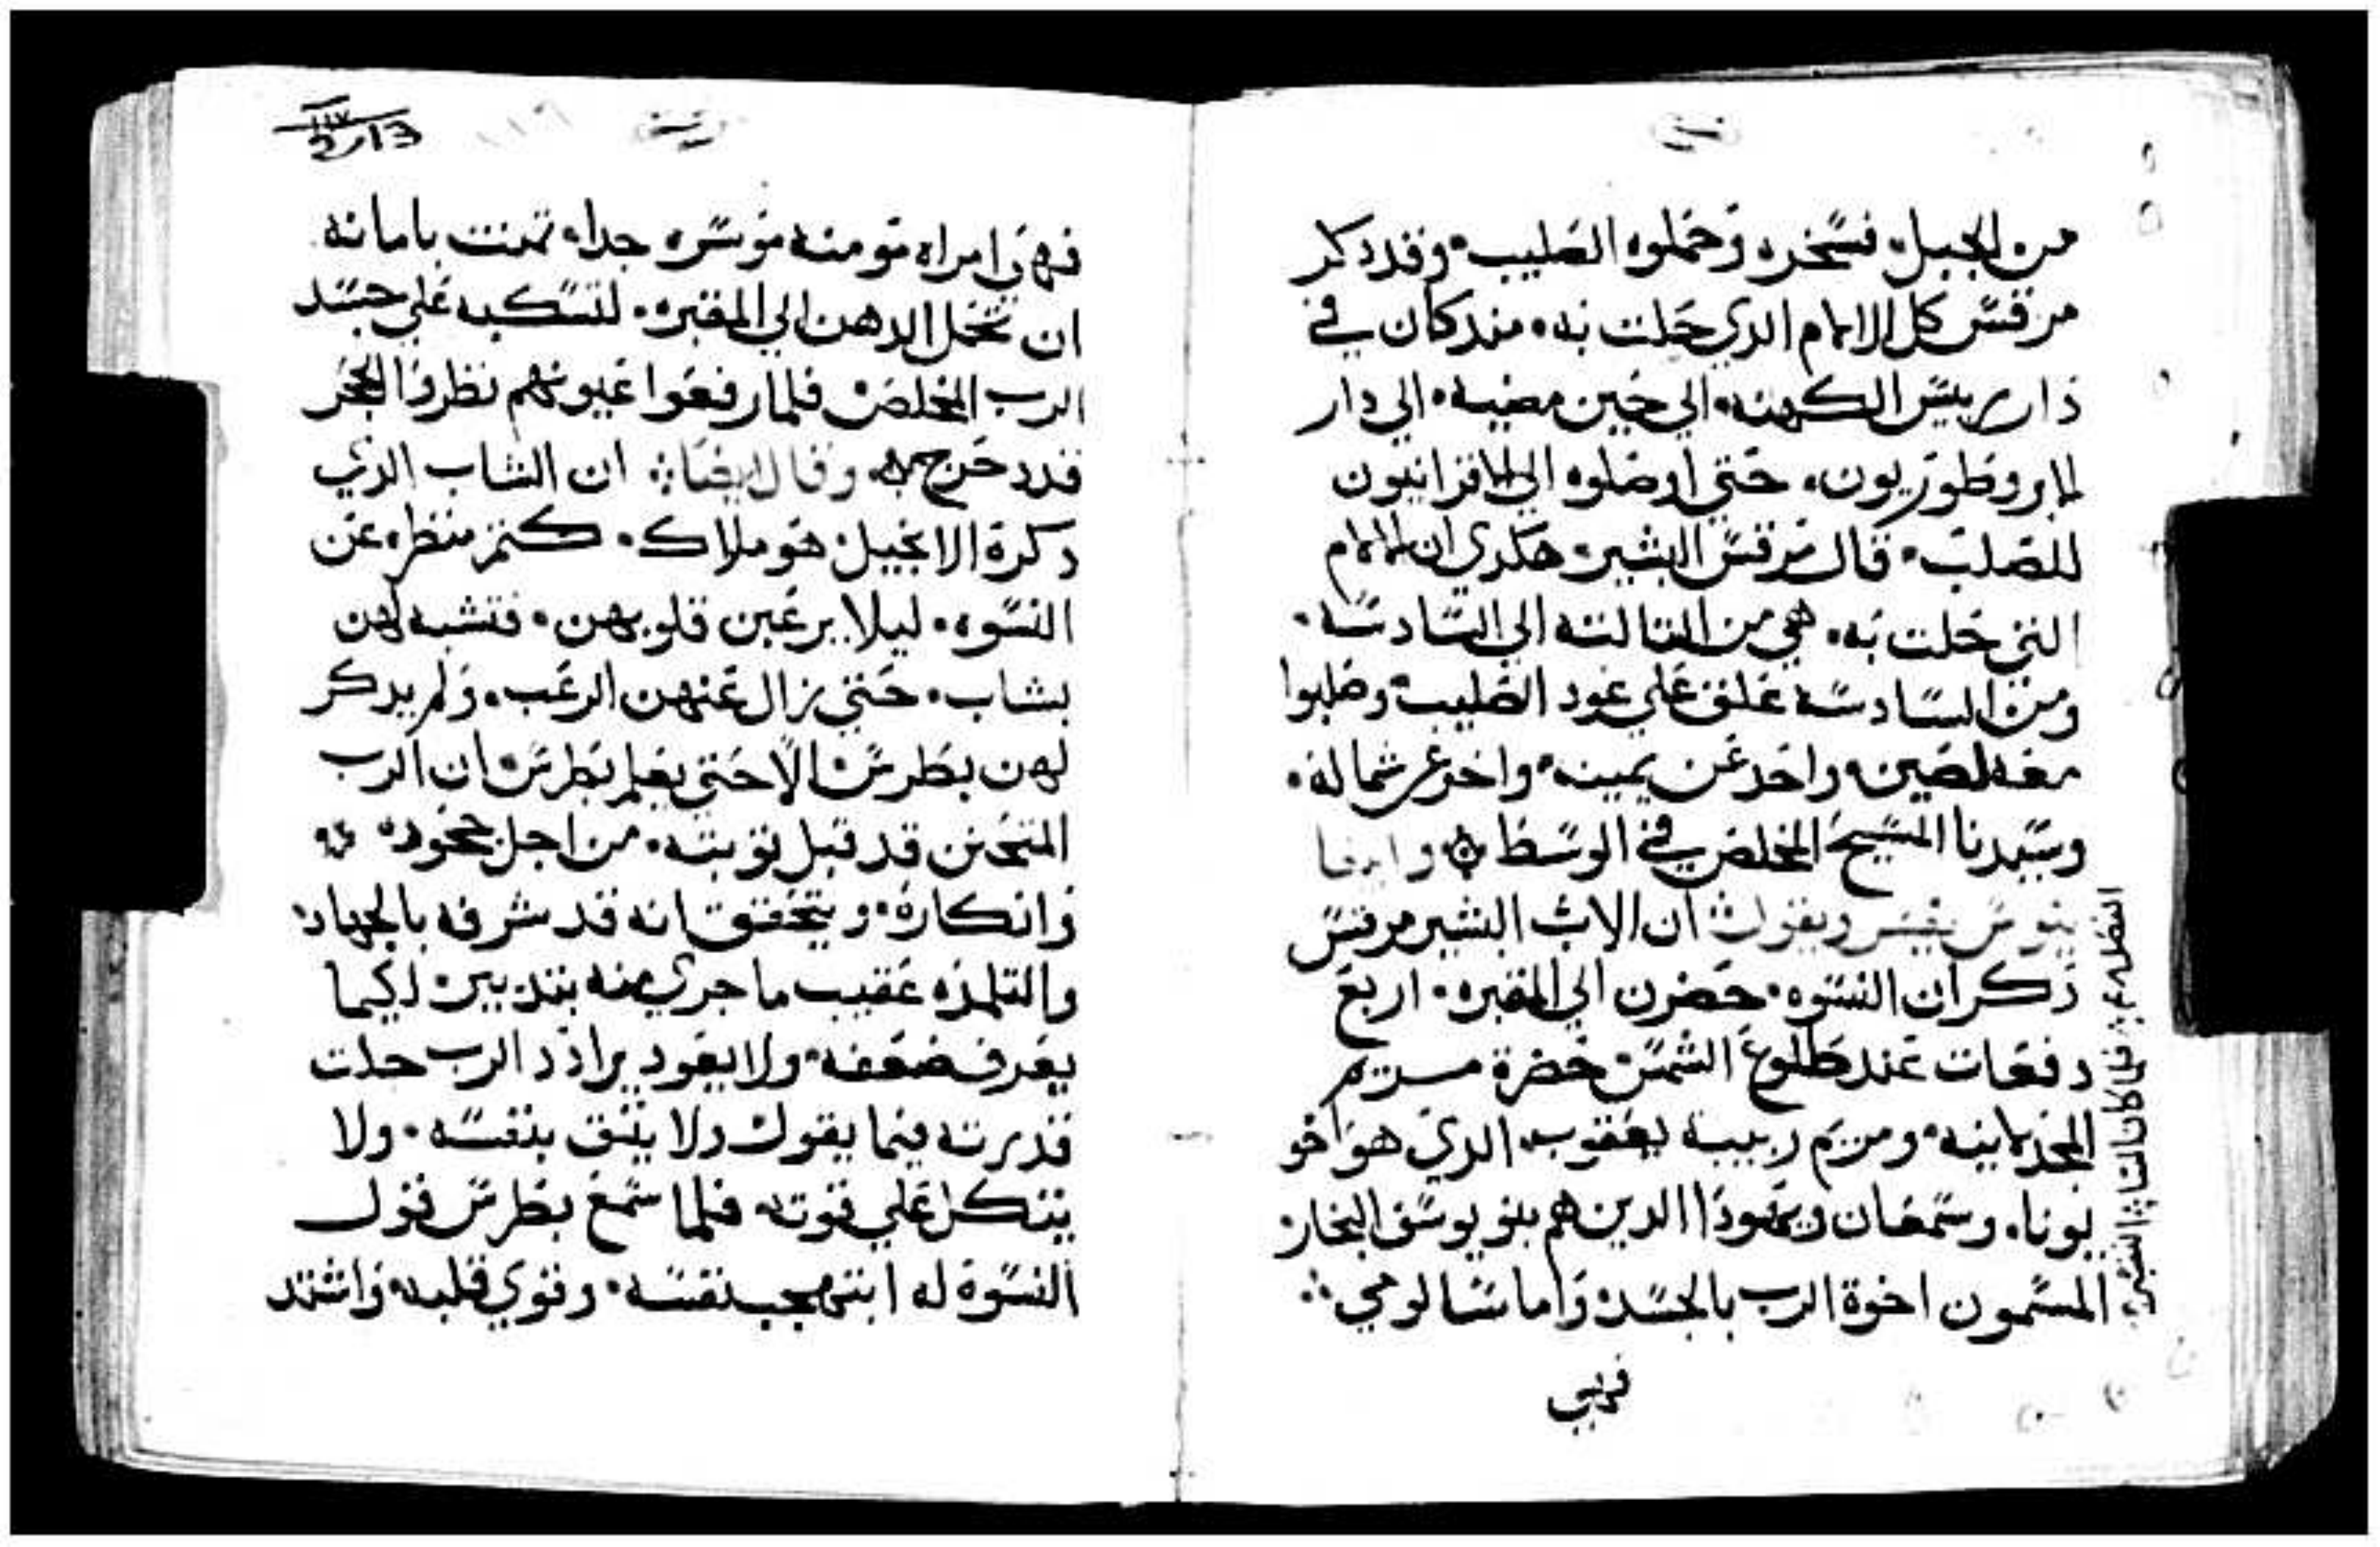 من الجبل فسخره وحملوه الصليب وقد دكر
مرقس كل الالام الدي حلت به مند كان في
دار رييس الكهنه الي حين مضيه الي دار
الابروطوريون حتي اوصلوه الي الاقرانيون
للصلب قال مرقس البشير هكدي ان الالام
التي حلت به هي من التالته الي السادسه
ومن السادسه علق علي عود الصليب وصلبوا
معه لصين واحد عن يمينه واخر عن شماله
وسيدنا المسيح المخلص في الوسط وايضا
يقسر ويقول ان الاب البشير مرقس
دكر ان النسوه حضرن الي المقبره اربع
دفعات عند طلوع الشمس حضرة مريم
المجدلانيه ومريم ربيبة يعقوب الدي هو اخو
يونا وسمعان ويهودا الدين هم بنو يوسف النجار
المسمون اخوة الرب بالجسد واما سالومي
فهي
فهي امراه مومنه موسره جدا تمنت بامانه
ان تحمل الدهن الي المقبره لتسكبه علي جسد
الرب المخلص فلما رفعوا عيونهم نظروا الحجر
قد دحرج وقال ايضا ان الشاب الدي
دكرة الانجيل هو ملاك كتم منظره عن
النسوه ليلا يرعبن قلوبهن فتشبه لهن
بشاب حتي زال عنهن الرعب ولم يدكر
لهن بطرس الا حتي يعلم بطرس ان الرب
المتحنن قد قبل توبته من اجل جحوده
وانكاره ويتحقق انه قد شرفه بالجهاد
والتلمذه عقيب ما جري منه بتدبير لكيما
يعرف ضعفه ولا يعود يرادد الرب جلت
قدرته فيما يقول ولا يتق بنفسه ولا
يتكل علي قوته فلما سمع بطرس قول
النسوة له ابتهجت نفسه وقوي قلبه واشتد